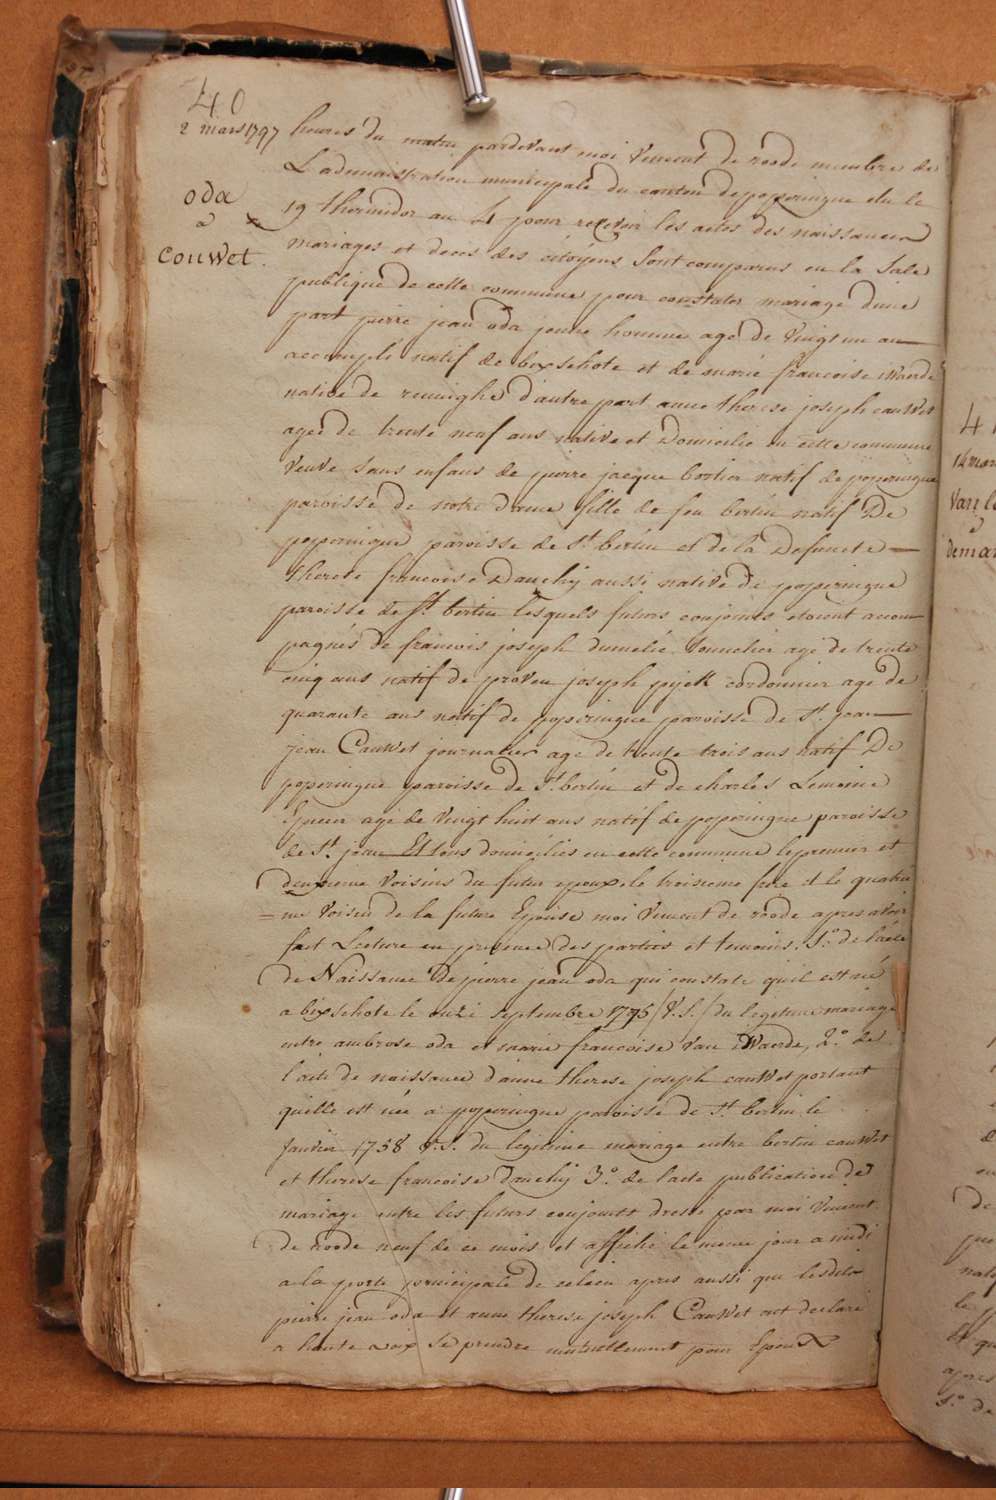 40
2 mars 1797
oda
a
couwet.
heures du matin pardevant moi vincent de roode membre de
L'administration municipale du canton de poperingue elu le
19 thermidor an 4 pour recevoir les actes des naissances
mariages et deces des citoyens Sont comparus en la Sale
publique de cette commune pour constater mariage dune
part pierre jean oda jeune homme agé de vingt un an
accompli natif de bixschote et de marie francoise Waerde
native de reninghe d'autre part anne therese joseph cauwet
agée de trente neuf ans native et Domicilie en cette commune
veuve sans enfans de pierre jacque bertier natif de poperingue
paroisse de notre dame fille de feu bertin natif De
poperingue paroisse de St. bertin et de la Defuncte
therete francoise Dauchij aussi native de poperingue
paroisse de St. bertin lesquels futurs conjoints etoient accom
pagnés de francois joseph dumelie agé de trente
cinq ans natif de proven joseph pijck cordonnier agé de
quarante ans natif de poperingue paroisse de St. jean
jean Cauwet journalier agé de trente trois ans natif De
poperingue paroisse de St. bertin et de charles Lemoine
agé de vingt huit ans natif de poperingue paroisse
de St. jean Et tous domiciliés en cette commune le premier et
deuxieme voisins du futur epoux, le troisieme frere et le quatrie
=me voisin de la future Epouse moi vincent de roode apres avoir
fait Lecture en presence des parties et temoins. 1.° de l'acte
de Naissance de pierre jean oda qui constate qu'il est né
a bixschote le onze septembre 1775 /V.S./ du legitime mariage
entre ambrose oda et marie francoise van Waerde, 2.° de
l'acte de naissance d'anne therese joseph cauwet portant
qu'elle est née a poperingue paroisse de St. bertin le
Janvier 1758 V.S. du legitime mariage entre bertin cauwet
et therese francoise Dauchij 3.° de l'acte publication de
mariage entre les futurs conjoints dressé par moi vincent
de roode neuf de ce mois et affiché le meme jour a midi
a la porte principale de apres aussi que lesdits
pierre jean oda et anne therese joseph Cauwet ont declaré
a haute voix se prendre mutuellement pour Epoux
41
12 mars
a